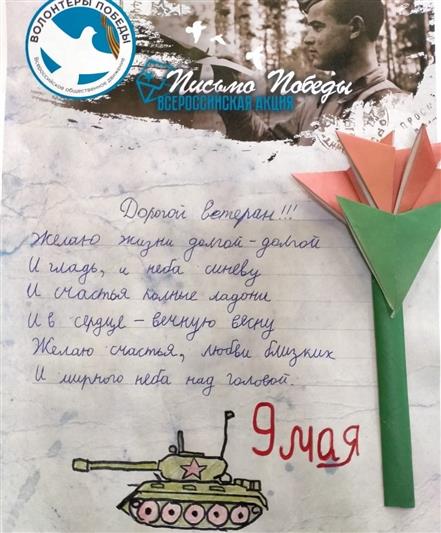 ВОЛОНТЁРЫ ПОБЕДЫ
Всероссийское общественное движение
Письмо Победы
ВСЕРОССИЙСКАЯ АКЦИЯ
Дорогой ветеран!!!
Желаю жизни долгой-долгой
И гладь, и неба синеву
И счастья полные ладони
И в сердце - вечную весну
Желаю счастья, любви близких
И мирного неба над головой.
9 мая